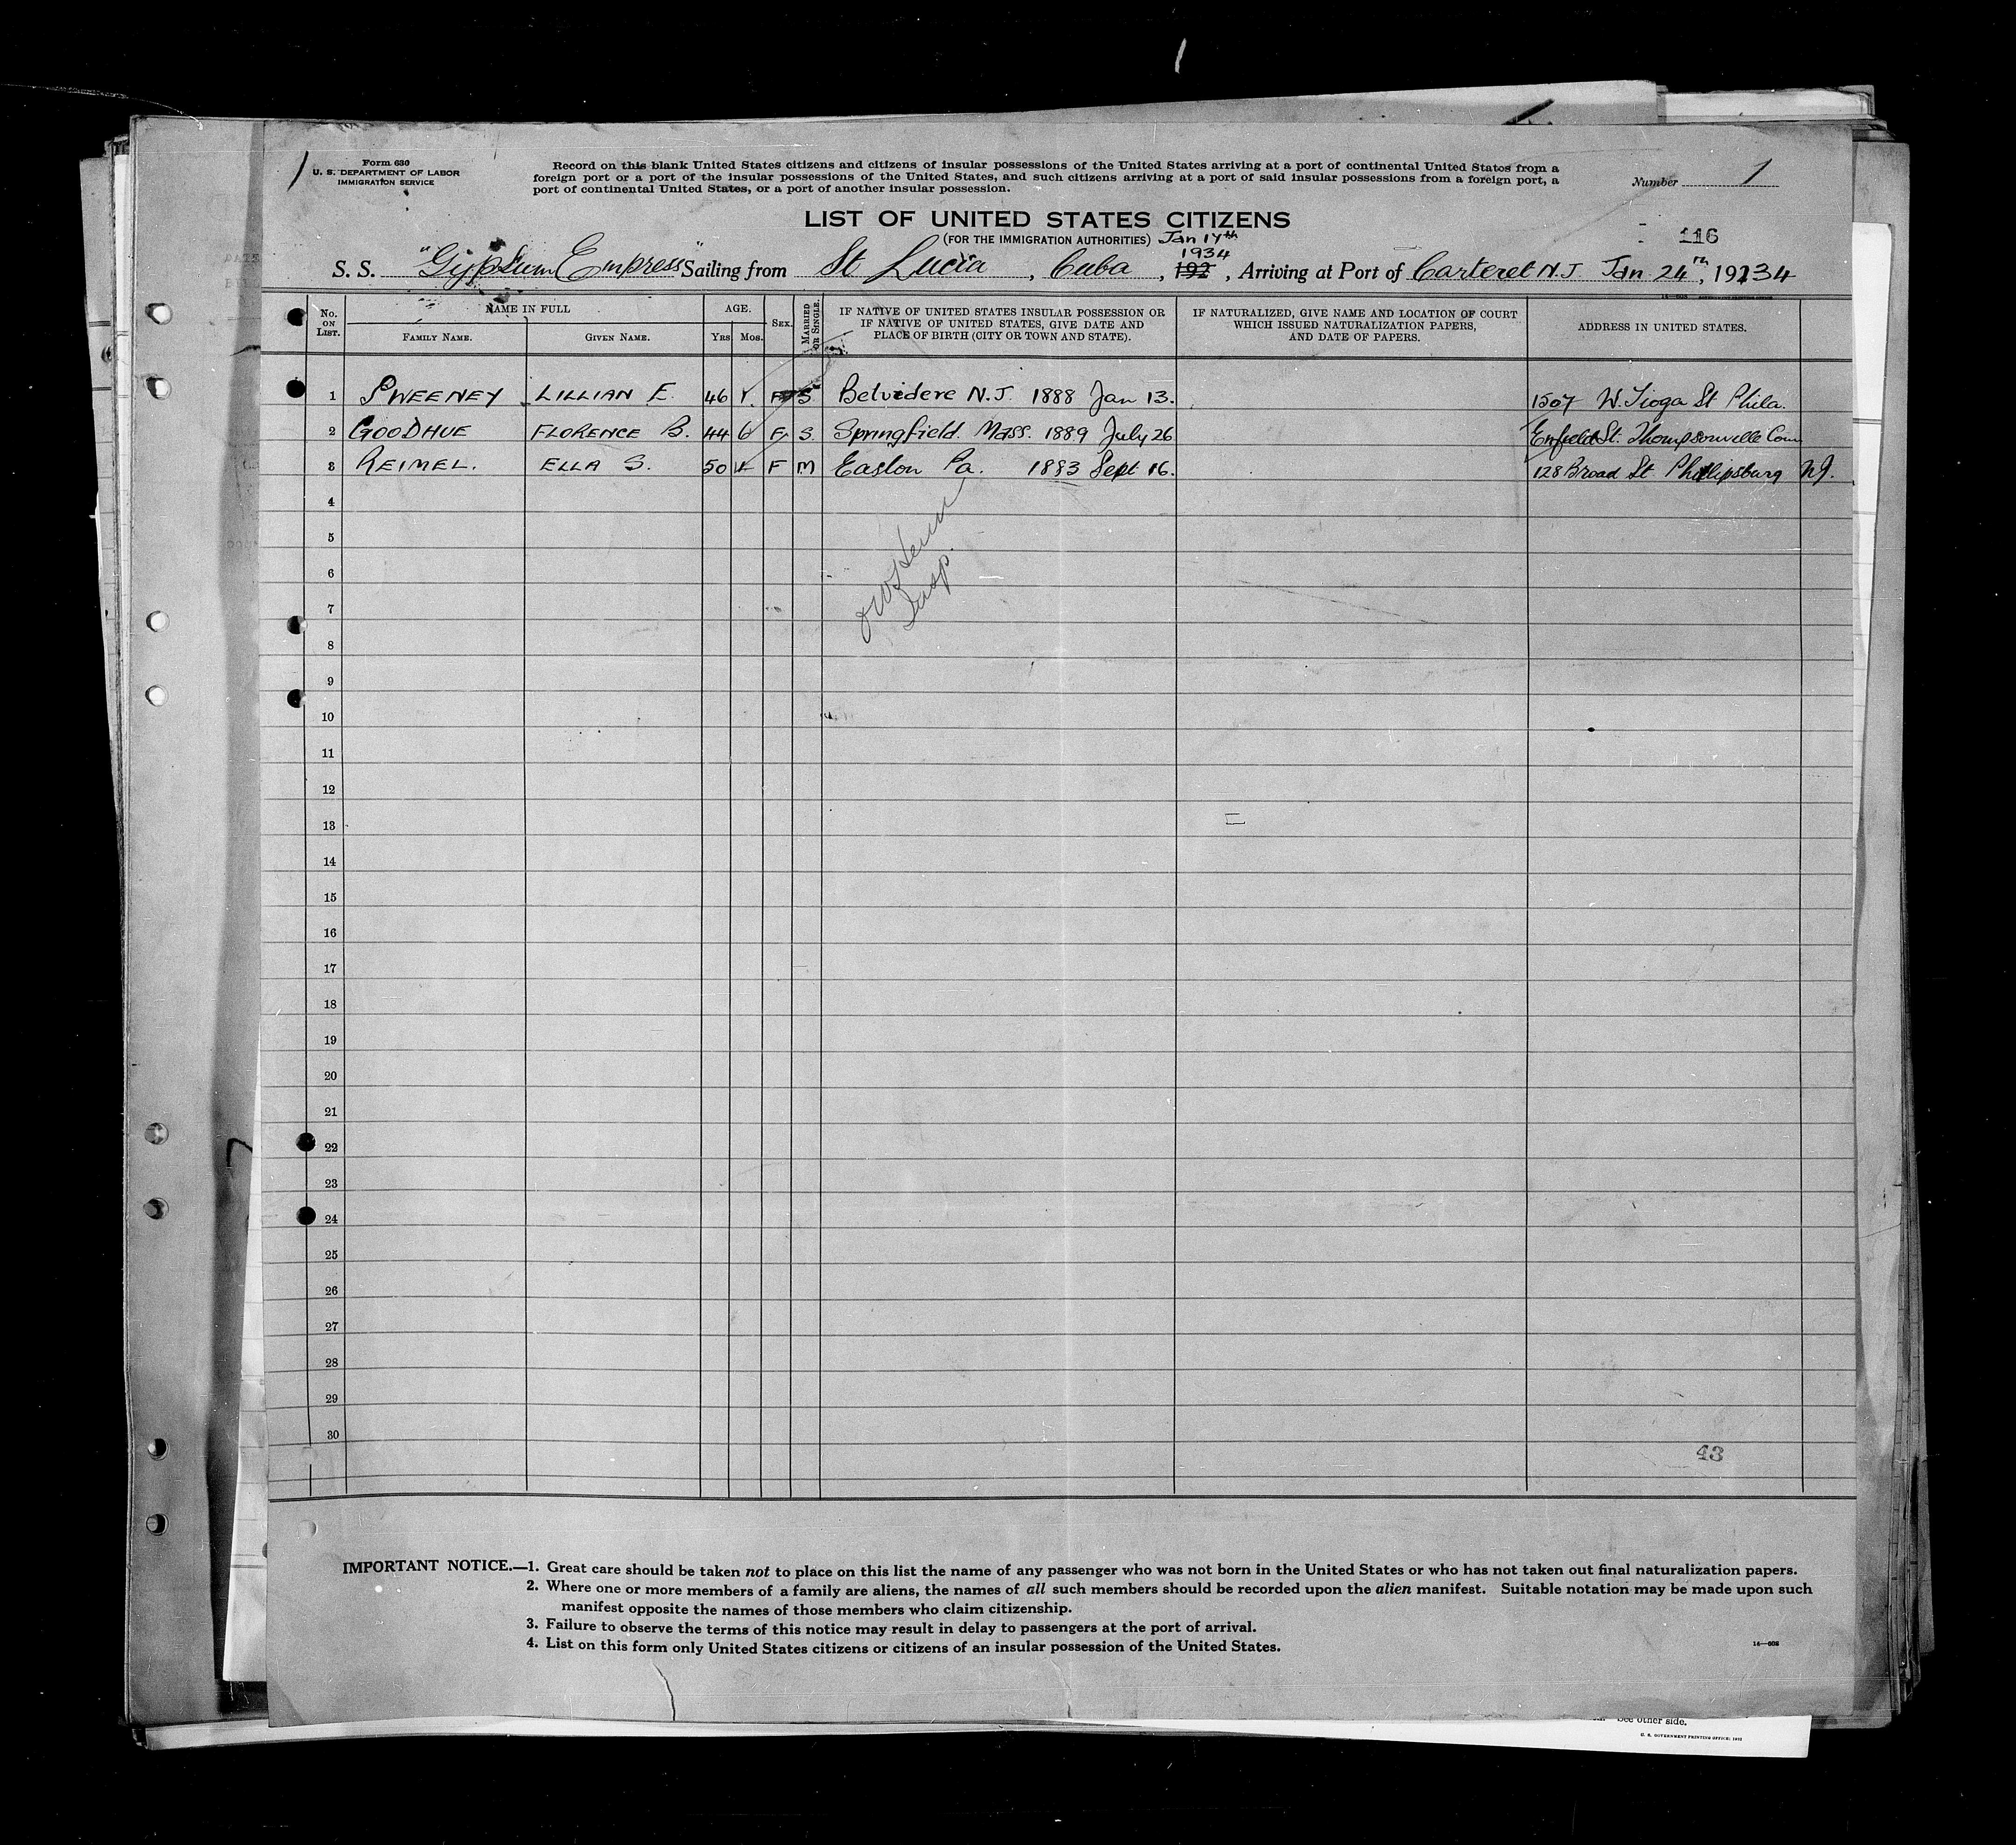 Form 630
U. S. DEPARTMENT OF LABOR
IMMIGRATION SERVICE
Record on this blank United States citizens and citizens of insular possessions of the United States arriving at a port of continental United States from a
foreign port or a port of the insular possessions of the United States, and such citizens arriving at a port of said insular possessions from a foreign port, a
port of continental United States, or a port of another insular possession.
Number 1
LIST OF UNITED STATES CITIZENS
(FOR THE IMMIGRATION AUTHORITIES) Jan 17th
116
1934
S. S. "Gypsum Empress" Sailing from St Lucia, Cuba, 192, Arriving at Port of Carteret N.J Jan 24th, 19234
No. ON LIST. NAME IN FULL FAMILY NAME. GIVEN NAME. AGE. YRS. MOS. SEX. MARRIED OR SINGLE. IF NATIVE OF UNITED STATES INSULAR POSSESSION OR IF NATIVE OF UNITED STATES, GIVE DATE AND PLACE OF BIRTH (CITY OR TOWN AND STATE). IF NATURALIZED, GIVE NAME AND LOCATION OF COURT WHICH ISSUED NATURALIZATION PAPERS, AND DATE OF PAPERS. ADDRESS IN UNITED STATES.
1 SWEENEY LILLIAN E. 46 F S Belvidere N.J. 1888 Jan 13. 1507 W. Tioga St Phila.
2 GOODHUE FLORENCE B. 44 6 F S. Springfield. Mass. 1889 July 26 Enfield St. Thompsonville Conn
3 REIMEL. ELLA S. 50 4 F M Easton Pa. 1883 Sept. 16. 128 Broad St. Phillipsburg N.J.
4
5
6
7
Insp.
8
9
10
11
12
13
14
15
16
17
18
19
20
21
22
23
24
25
26
27
28
29
30
43
IMPORTANT NOTICE.—1. Great care should be taken not to place on this list the name of any passenger who was not born in the United States or who has not taken out final naturalization papers.
2. Where one or more members of a family are aliens, the names of all such members should be recorded upon the alien manifest. Suitable notation may be made upon such
manifest opposite the names of those members who claim citizenship.
3. Failure to observe the terms of this notice may result in delay to passengers at the port of arrival.
4. List on this form only United States citizens or citizens of an insular possession of the United States.
14—608
See other side.
U. S. GOVERNMENT PRINTING OFFICE: